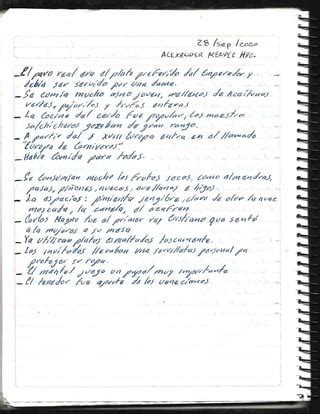 28/Sep/2020
ALEXANDER MENDEZ HPC.
_ El pavo real era el plato preferido del Emperador y
debia ser servido por una dama.
_ Se comía mucho asno joven, mollescos de Aceitunas
verdes, pajaritos y trufas enteras
_ La cocina del cerdo fue popular, los maestro
salchicheros gozaban de gran rango.
_ A partir del S XVIII Europa entra en el llamado
"Europa de Carnivoros"
_ Había Comida para todos.
_ Se consumian mucho los Frutos secos, como almendras,
pasas, piñones, nueces, avellanas e higos.
_ La especias: pimienta jengibre, clavo de olor la nuez
moscada, la canela, el azafran
_ Carlos Magno fue el primer rey Cristiano que sentó
a la mujeres a su mesa
_ Ya utilizan platos esmaltados toscamente.
_ Los invitados llevaban una servilleta personal pa
proteger su ropa.
_ El mantel juego un papel muy importante
_ El tenedor fue aporte de los venecianos